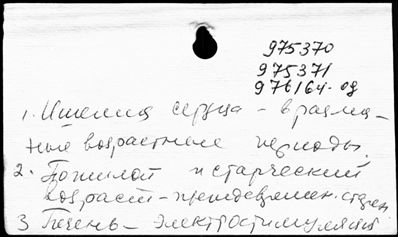 975370
975371
976164-од
1. Ишемия сердца - в различ-
ные возрастные периоды.
2. Пожилой и старческий
возраст - преждевремен. старен
3 Печень - электростимуляция